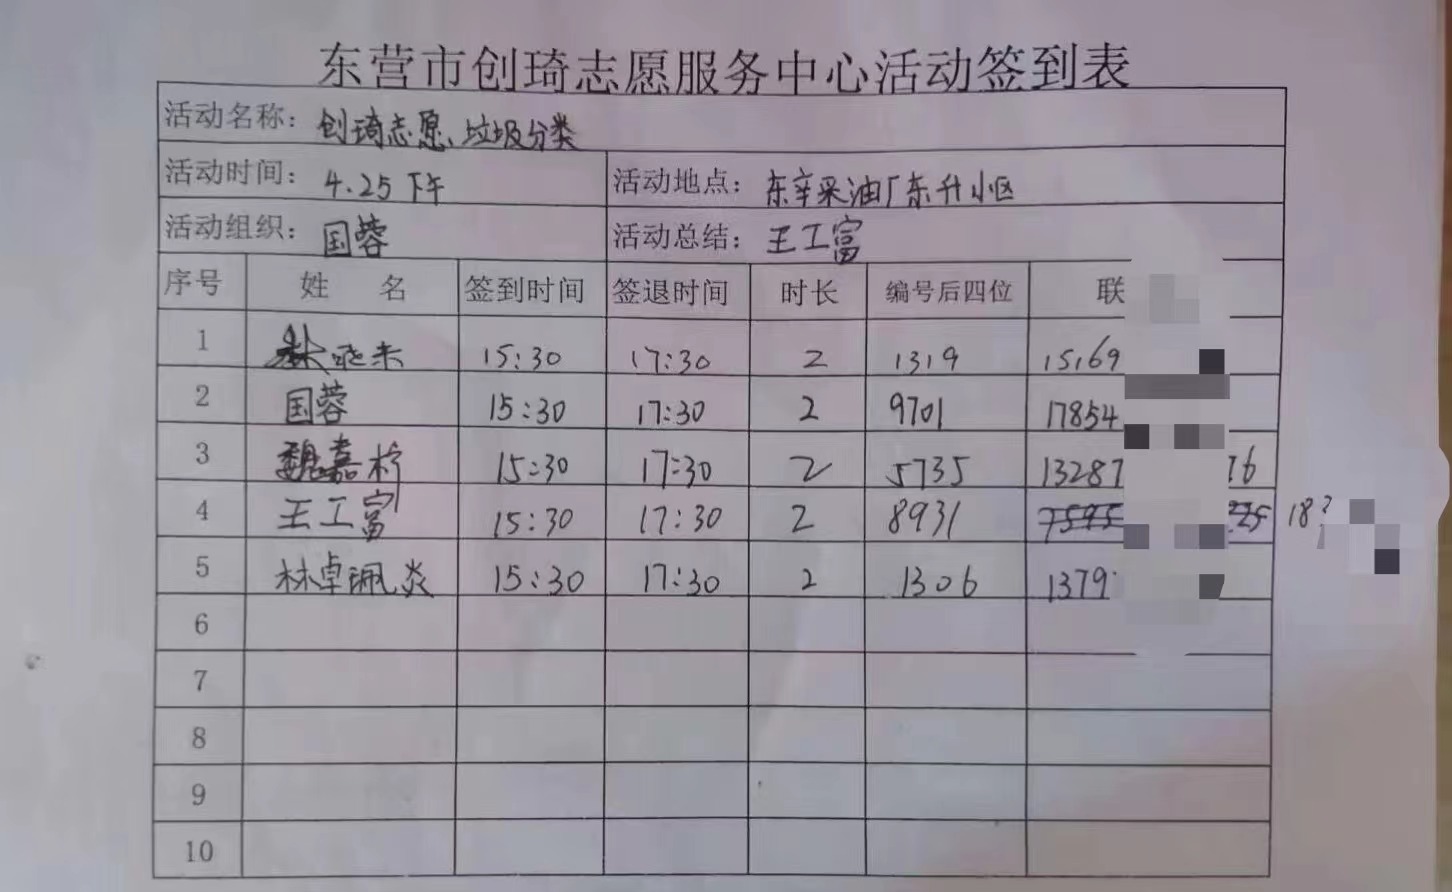 东营市创琦志愿服务中心活动签到表
活动名称：创琦志愿、垃圾分类
活动时间：4.25下午 活动地点：东辛采油厂东升小区
活动组织：国蓉 活动总结：王工富
序号 姓 名 签到时间 签退时间 时长 编号后四位 联
1 晓未 15:30 17:30 2 1319 15169
2 国蓉 15:30 17:30 2 9701 17854
3 魏嘉柠 15:30 17:30 2 5735 13287 76
4 王工富 15:30 17:30 2 8931 18
5 林卓珮炎 15:30 17:30 2 1306 1379
6
7
8
9
10